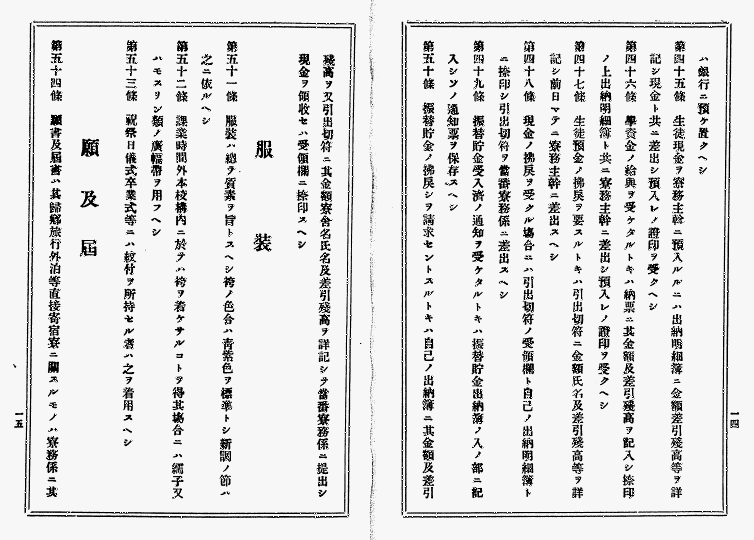 ハ銀行ニ預ケ置クヘシ
第四十五條　生徒現金ヲ寮務主幹ニ預入ルルニハ出納明細簿ニ金額差引殘高等ヲ詳
記シ現金ト共ニ差出シ預入レノ證印ヲ受クヘシ
第四十六條　學資金ノ給與ヲ受ケタルトキハ納票ニ其金額及差引殘高ヲ記入シ捺印
ノ上出納明細簿ト共ニ寮務主幹ニ差出シ預入レノ證印ヲ受クヘシ
第四十七條　生徒預金ノ拂戾ヲ要スルトキハ引出切符ニ金額氏名及差引殘高等ヲ詳
記シ前日マテニ寮務主幹ニ差出スヘシ
第四十八條　現金ノ拂戾ヲ受クル塲合ニハ引出切符ノ受領欄ト自己ノ出納明細簿ト
ニ捺印シ引出切符ヲ當番寮務係ニ差出スヘシ
第四十九條　振替貯金受入濟ノ通知ヲ受ケタルトキハ振替貯金出納簿ノ入ノ部ニ記
入シソノ通知票ヲ保存スヘシ
第五十條　振替貯金ノ拂戾シヲ請求セントスルトキハ自己ノ出納簿ニ其金額及差引
一四
殘高ヲ又引出切符ニ其金額寮舍名氏名及差引殘高ヲ詳記シテ當番寮務係ニ提出シ
現金ヲ領收セハ受領欄ニ捺印スヘシ
服裝
第五十一條　服裝ハ總テ質素ヲ旨トスヘシ袴ノ色合ハ靑紫色ヲ標準トシ新調ノ節ハ
之ニ依ルヘシ
第五十二條　課業時間外本校構內ニ於テハ袴ヲ着ケサルコトヲ得其塲合ニハ繻子又
ハモスリン類ノ廣幅帶ヲ用フヘシ
第五十三條　祝祭日儀式卒業式等ニハ紋付ヲ所持セル者ハ之ヲ着用スヘシ
願及屆
第五十四條　願書及屆書ハ其歸鄕旅行外泊等直接寄宿寮ニ關スルモノハ寮務係ニ其
一五